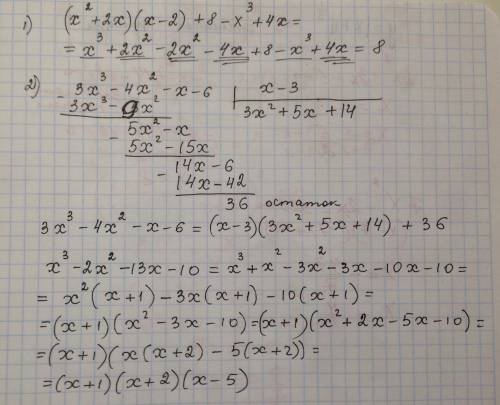 1) (x² + 2x)(x - 2) + 8 - x³ + 4x =
= x³ + 2x² - 2x² - 4x + 8 - x³ + 4x = 8
2) - 3x³ - 4x² - x - 6 | x - 3
3x³ - 9x² 3x² + 5x + 14
- 5x² - x
5x² - 15x
- 14x - 6
14x - 42
36 остаток
3x³ - 4x² - x - 6 = (x - 3)(3x² + 5x + 14) + 36
x³ - 2x² - 13x - 10 = x³ + x² - 3x² - 3x - 10x - 10 =
= x²(x + 1) - 3x(x + 1) - 10(x + 1) =
= (x + 1)(x² - 3x - 10) = (x + 1)(x² + 2x - 5x - 10) =
= (x + 1)(x(x + 2) - 5(x + 2)) =
= (x + 1)(x + 2)(x - 5)